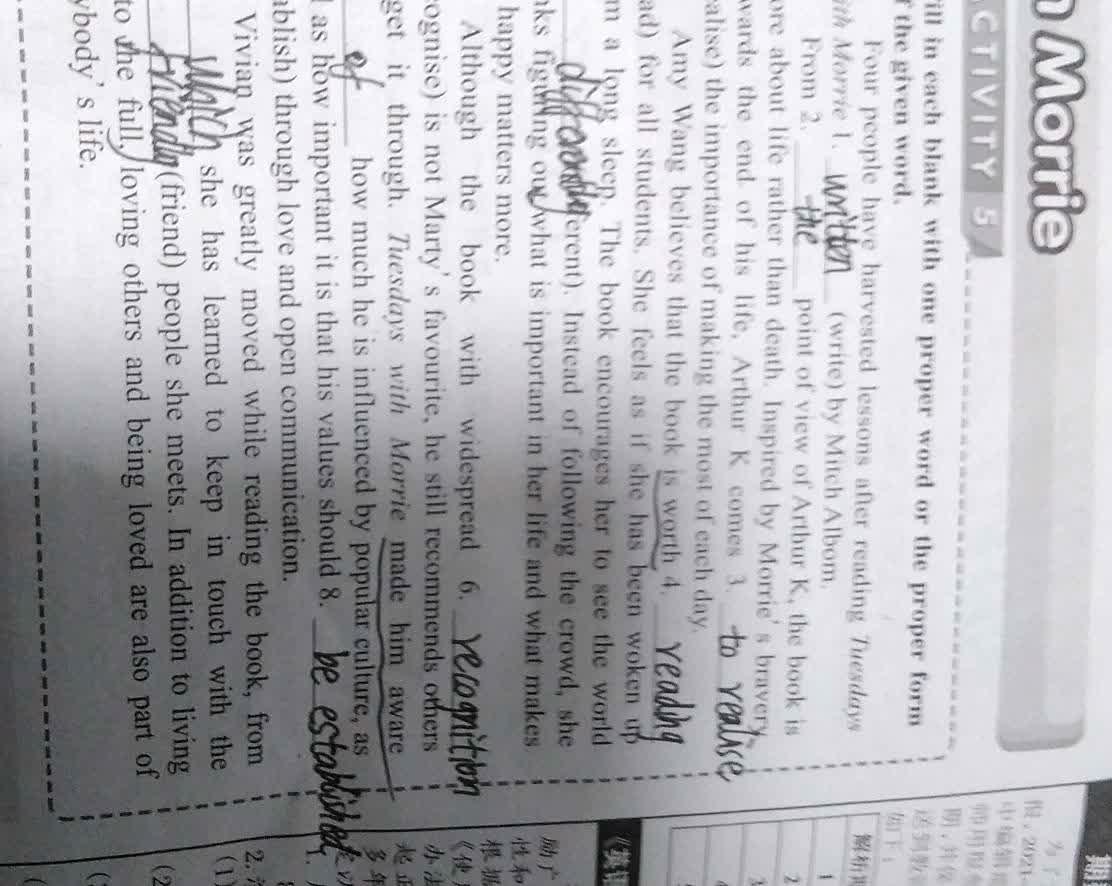 Morrie
CTIVITY 5
ill in each blank with one proper word or the proper form
f the given word.
Four people have harvested lessons after reading Tuesdays
ith Morrie 1. written (write) by Mitch Albom.
From 2. the point of view of Arthur K, the book is
ore about life rather than death. Inspired by Morrie's bravery
wards the end of his life, Arthur K comes 3. to realise
alise) the importance of making the most of each day.
Amy Wang believes that the book is worth 4. reading
ad) for all students. She feels as if she has been woken up
m a long sleep. The book encourages her to see the world
differently erent). Instead of following the crowd, she
nks figuring out what is important in her life and what makes
happy matters more.
Although the book with widespread 6. recognition
ognise) is not Marty's favourite, he still recommends others
get it through. Tuesdays with Morrie made him aware
of how much he is influenced by popular culture, as
l as how important it is that his values should 8. be established
ablish) through love and open communication.
Vivian was greatly moved while reading the book, from
which she has learned to keep in touch with the
friendly (friend) people she meets. In addition to living
to the full, loving others and being loved are also part of
ybody's life.
解析
1
2
3
4
《英
励广
性和
根据
《使
办法
起正
多年
2.
(1)
(2